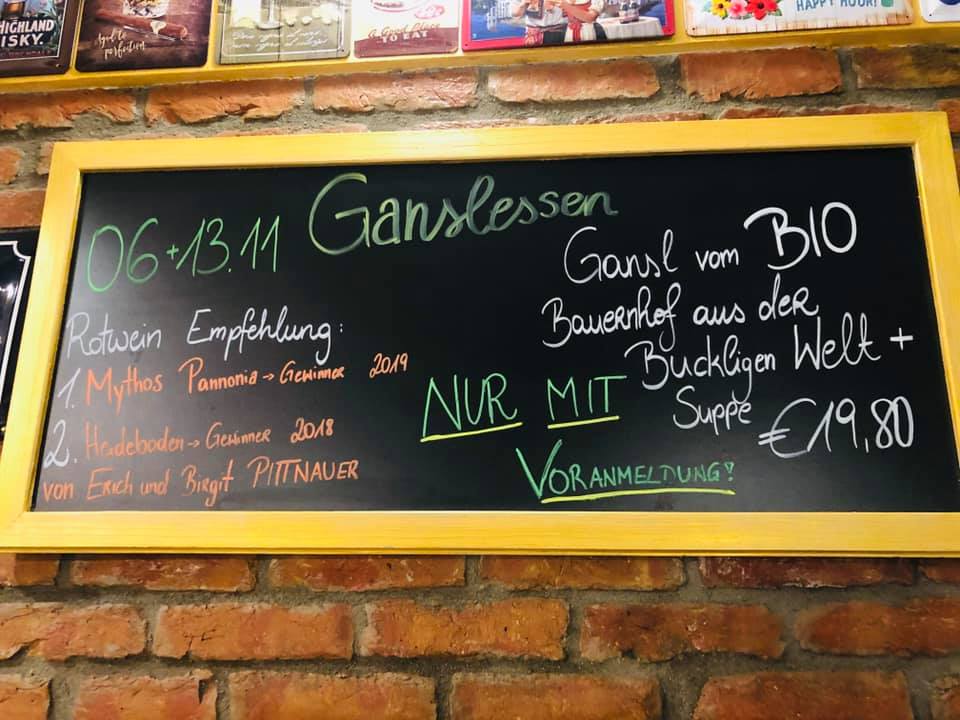 HIGHLAND
ISKY.
Aged to
perfection
A Good Place
TO EAT
HAPPY HOUR!
06+13.11 Ganslessen
Rotwein Empfehlung:
1. Mythos Pannonia → Gewinner 2019
2. Heideboden → Gewinner 2018
von Erich und Birgit PITTNAUER
NUR MIT
VORANMELDUNG!
Gansl vom BIO
Bauernhof aus der
Buckligen Welt +
Suppe €19,80